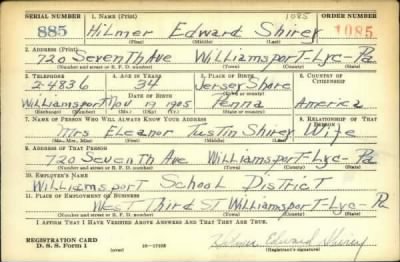 SERIAL NUMBER 1. NAME (Print) 1085 ORDER NUMBER
885 Hilmer Edward Shirey 1085
(First) (Middle) (Last)
2. ADDRESS (Print)
720 Seventh Ave Williamsport-Lyc-Pa
(Number and street or R. F. D. number) (Town) (County) (State)
3. TELEPHONE 4. AGE IN YEARS 5. PLACE OF BIRTH 6. COUNTRY OF CITIZENSHIP
2-4836 34 Jersey Shore
DATE OF BIRTH (Town or county)
Williamsport Nov 17 1905 Penna America
(Exchange) (Mo.) (Day) (Yr.) (State or country)
7. NAME OF PERSON WHO WILL ALWAYS KNOW YOUR ADDRESS 8. RELATIONSHIP OF THAT PERSON
Mrs Eleanor Tustin Shirey Wife
(Mr., Mrs., Miss) (First) (Middle) (Last)
9. ADDRESS OF THAT PERSON
720 Seventh Ave Williamsport-Lyc-Pa
(Number and street or R. F. D. number) (Town) (County) (State)
10. EMPLOYER'S NAME
Williamsport School District
11. PLACE OF EMPLOYMENT OR BUSINESS
West Third St Williamsport-Lyc-Pa
(Number and street or R. F. D. number) (Town) (County) (State)
I AFFIRM THAT I HAVE VERIFIED ABOVE ANSWERS AND THAT THEY ARE TRUE.
REGISTRATION CARD Hilmer Edward Shirey
D. S. S. Form 1 (over) (Registrant's signature)